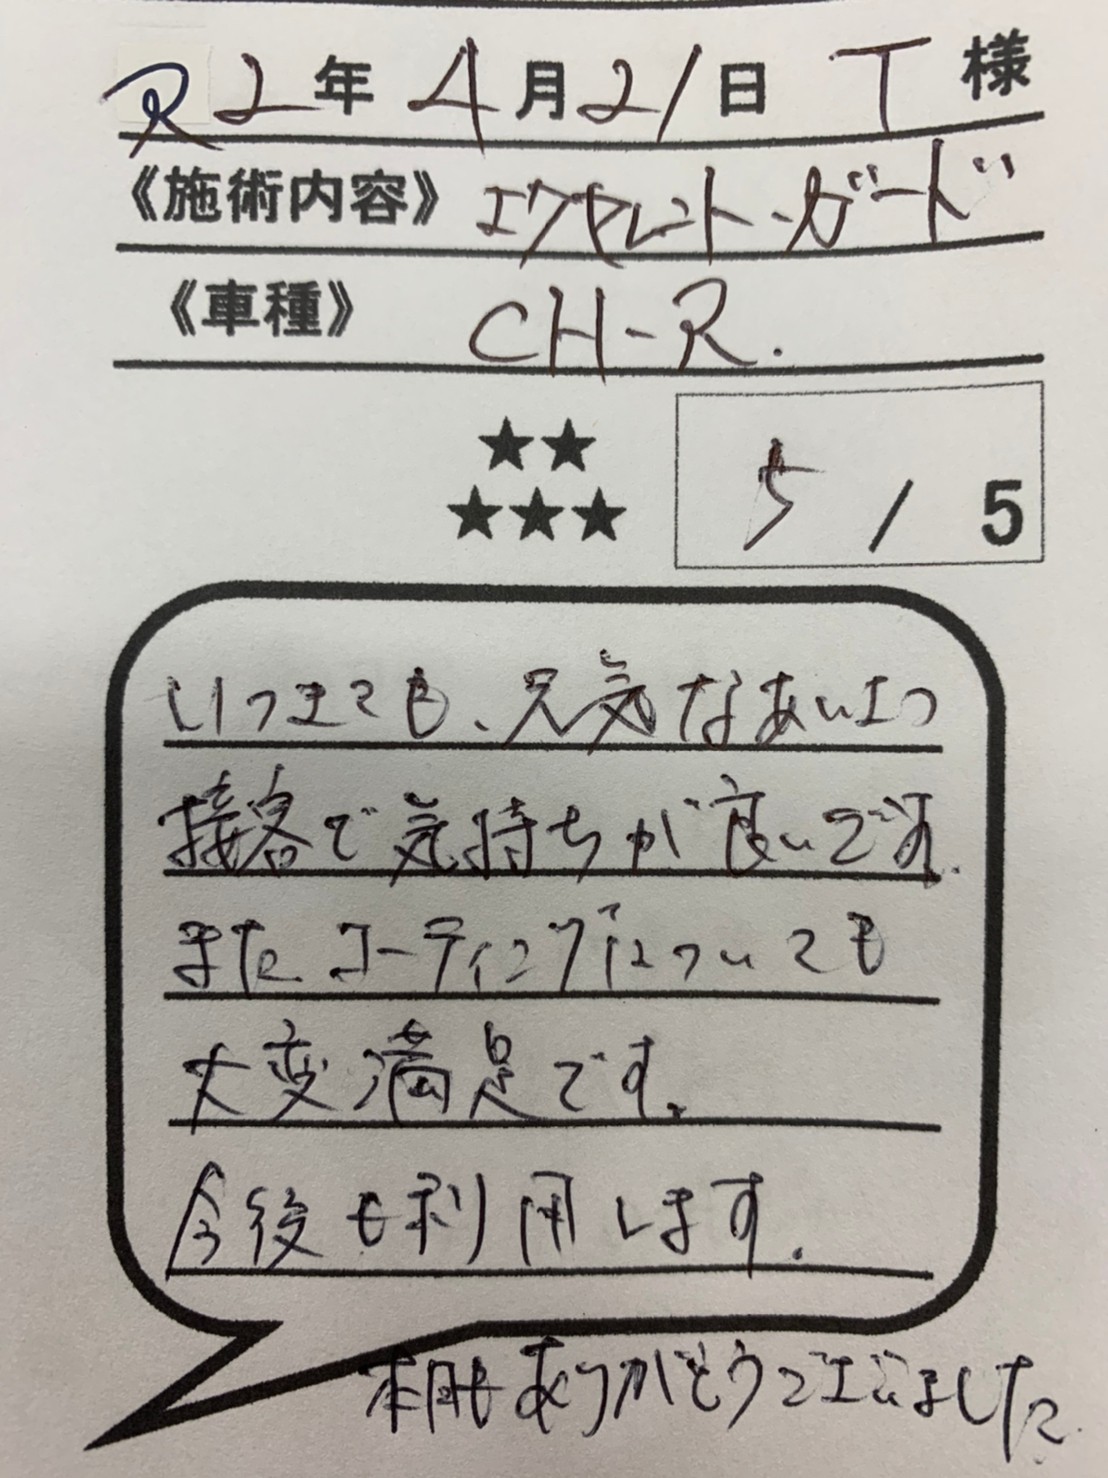 R2年4月21日 T様
《施術内容》 エクセレント・ガード
《車種》 CH-R.
★★
★★★
5 / 5
いつまでも、元気なあいさつ
接客で気持ちが良いです。
またコーティングについても
大変満足です。
今後も利用します。
本日もありがとうございました